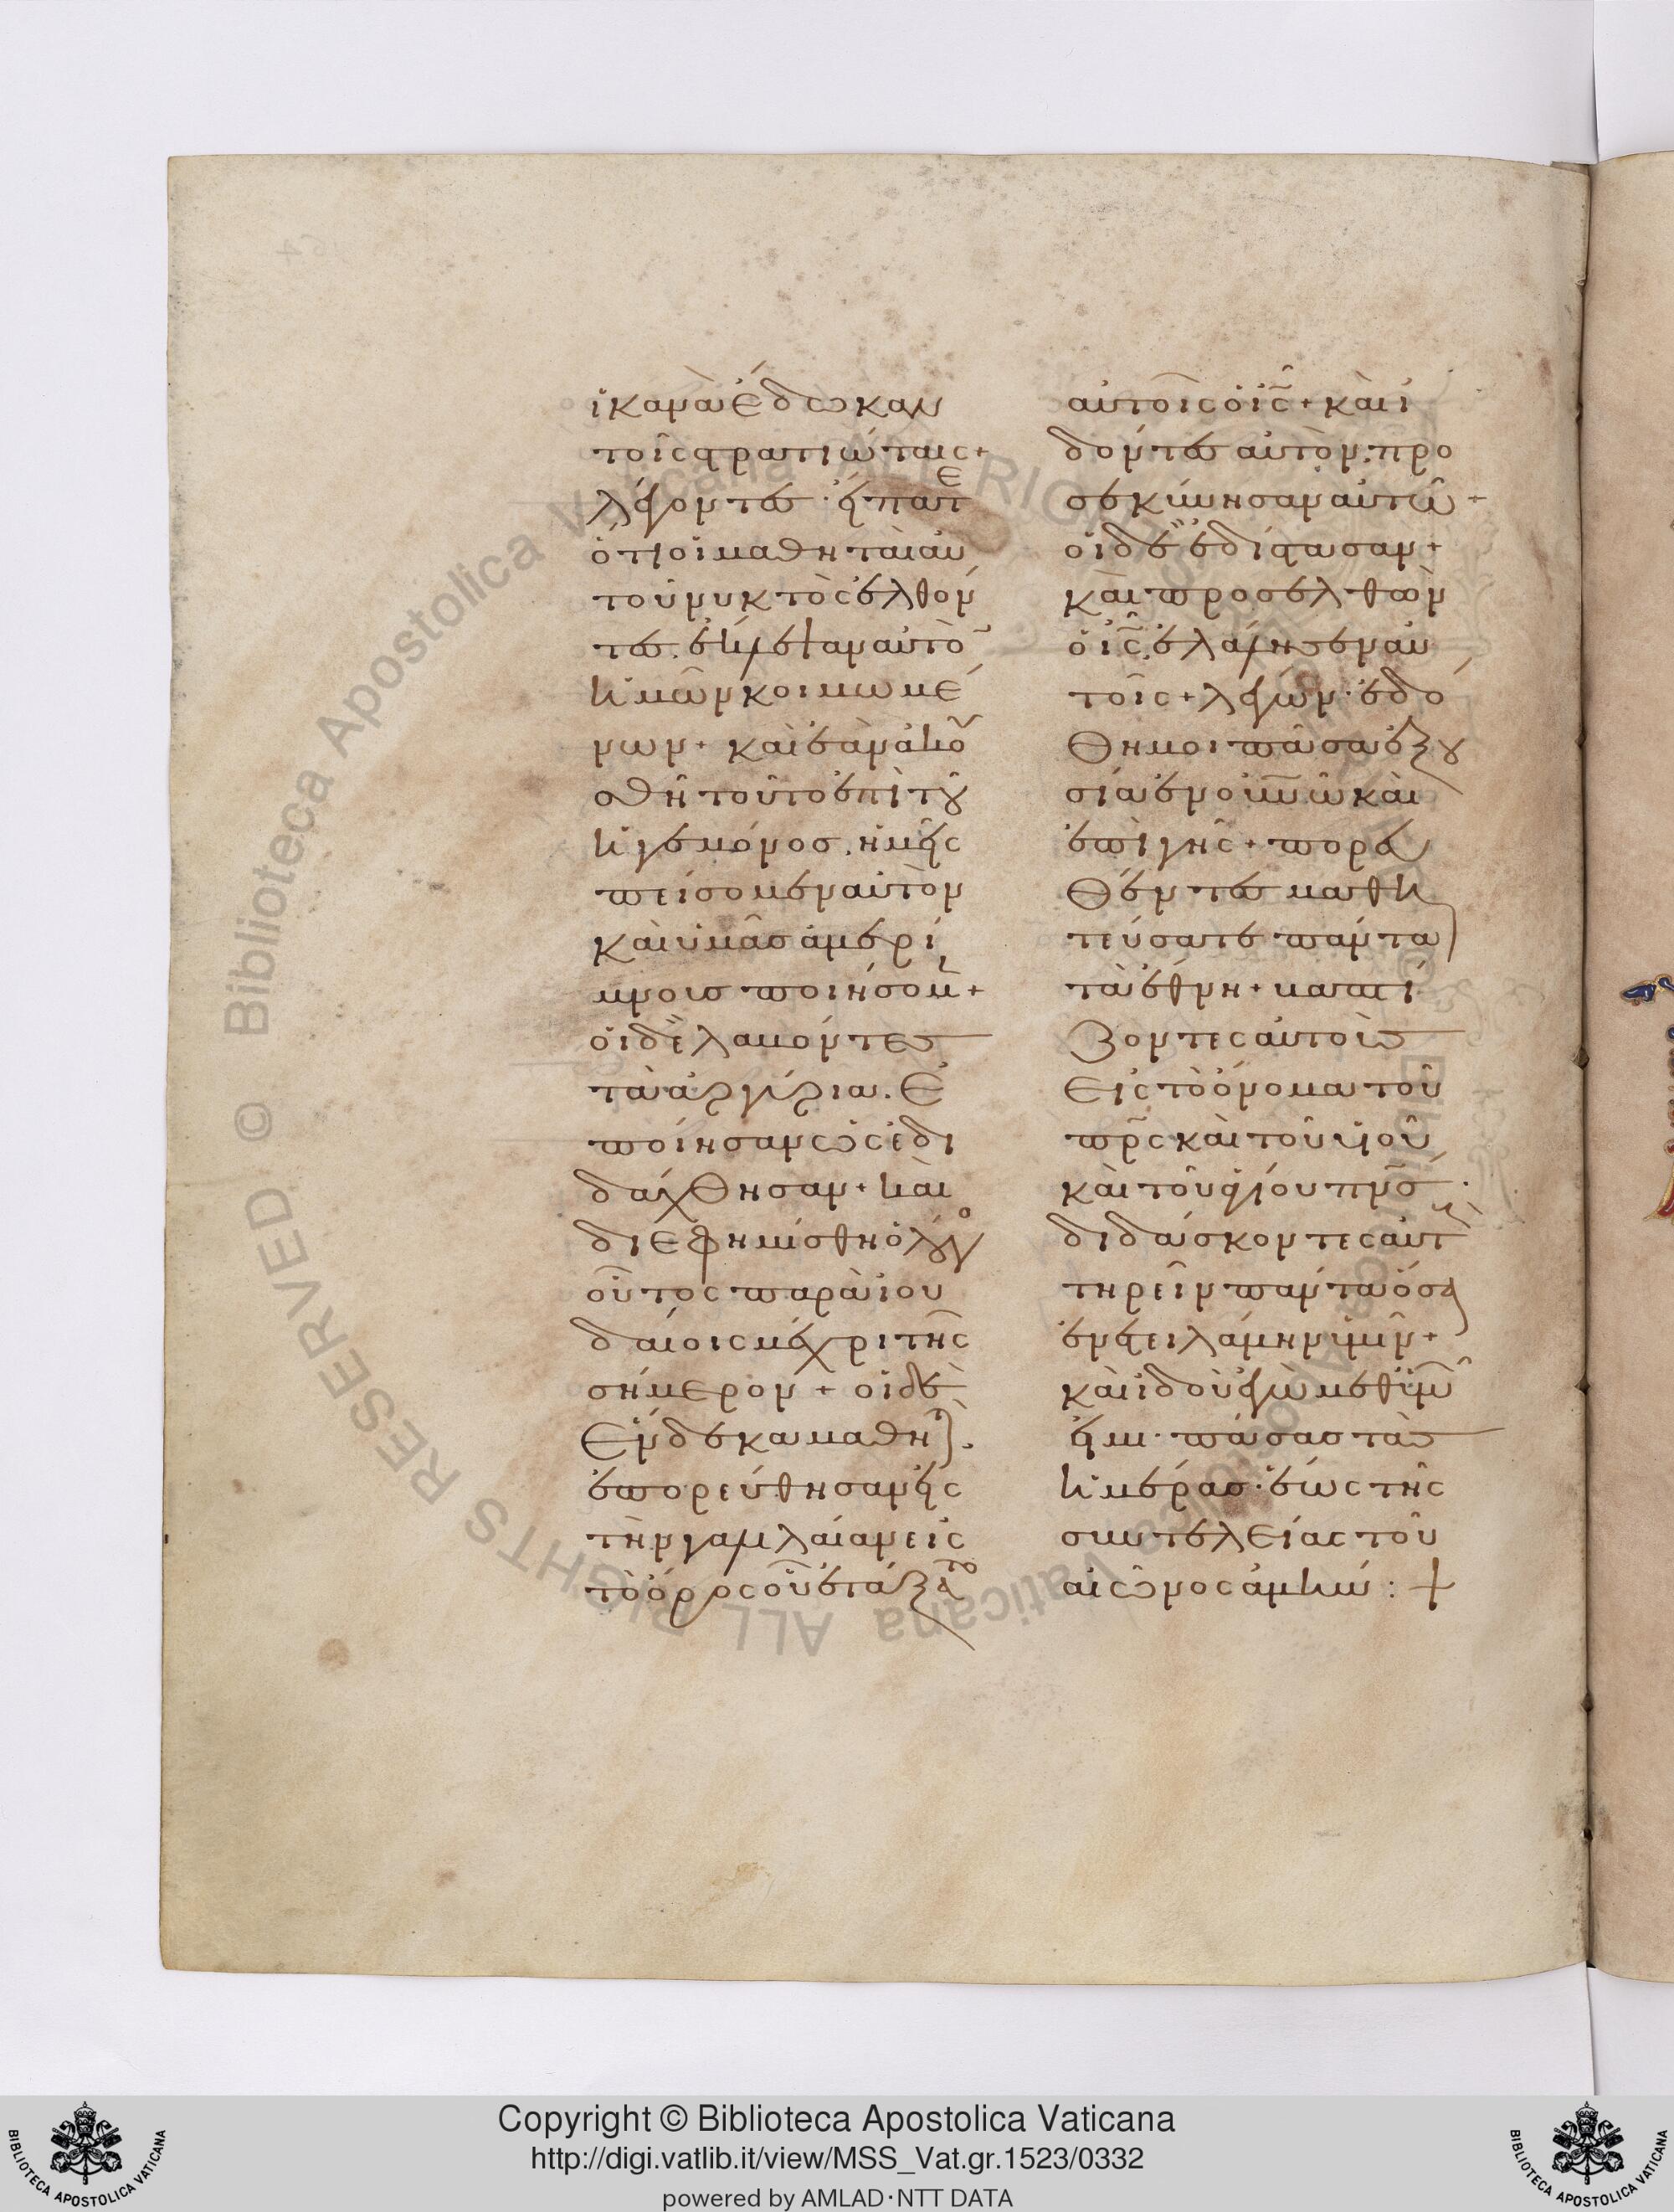 ἱκανὰ ἔδωκαν
τοῖς στρατιώταις +
λέγοντες · εἴπατε
ὅτι οἱ μαθηταὶ αὐ
τοῦ νυκτὸς ἐλθόν
τες. ἔκλεψαν αὐτὸ̄
ἡμῶν κοιμωμέ
νων + καὶ ἐὰν ἀκου
σθῆ τοῦτο ἐπὶ τοῦ
ἡγεμόνος. ἡμεῖς
πείσομεν αὐτὸν
καὶ ὑμᾶς ἀμερί
μνους ποιήσομ̄ +
οἱ δὲ λαβόντες
τὰ ἀργύρια. ἐ
ποίησαν ὡς ἐδι
δάχθησαν + καὶ
διεφημίσθη ὁ λόγο
οὗτος παρὰ ἰου
δαίοις μέχρι τῆς
σήμερον + οἱ δὲ
ἕνδεκα μαθητ.
ἐπορεύθησαν εἰς
τὴν γαλιλαίαν εἰς
τὸ ὄρος οὗ ἐτάξατο
αὐτοῖς ὁ ις̄ + καὶ ἰ
δόντες αὐτὸν. προ
σεκύνησαν αὐτῶ +
οἱ δὲ ἐδίστασαν +
καὶ προσελθὼν
ὁ ις̄. ἐλάλησεν αὐ
τοῖς + λέγων · ἐδό
θη μοι πᾶσα ἐξου
σία ἐν οὐν̄ῶ καὶ
ἐπὶ γῆς + πορευ
θέντες μαθη
τεύσατε πάντα
τὰ ἔθνη + βαπτί
ζοντες αὐτοὺς
εἰς τὸ ὄνομα τοῦ
πρ̄ς καὶ τοῦ υἱοῦ
καὶ τοῦ ἁγίου πνσ̄ ·
διδάσκοντες αὐτ
τηρεῖν πάντα ὅσα
ἐνετειλάμην ὑμῖν +
καὶ ἰδοὺ ἐγὼ μεθ ὑμῶ
εἰμι · πάσας τὰς
ἡμέρας · ἕως τῆς
συντελείας τοῦ
αἰῶνος ἀμήν : +
Copyright © Biblioteca Apostolica Vaticana
http://digi.vatlib.it/view/MSS_Vat.gr.1523/0332
powered by AMLAD·NTT DATA
BIBLIOTECA APOSTOLICA VATICANA
BIBLIOTECA APOSTOLICA VATICANA